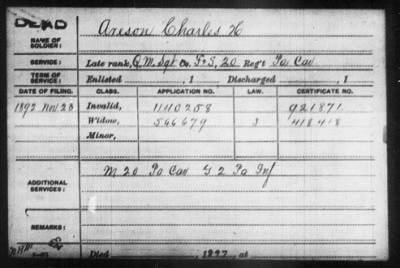 DEAD
NAME OF SOLDIER: Areson Charles H
SERVICE: Late rank, Q.M. Sgt Co. F&S, 20 Reg't Pa Cav
TERM OF SERVICE: Enlisted , 1 Discharged , 1
DATE OF FILING. CLASS. APPLICATION NO. LAW. CERTIFICATE NO.
1892 Nov 23 Invalid, 1140258 921871
Widow, 566679 3 418418
Minor,
ADDITIONAL SERVICES: M 20 Pa Cav G 2 Pa Inf
REMARKS:
Died , 1897, at